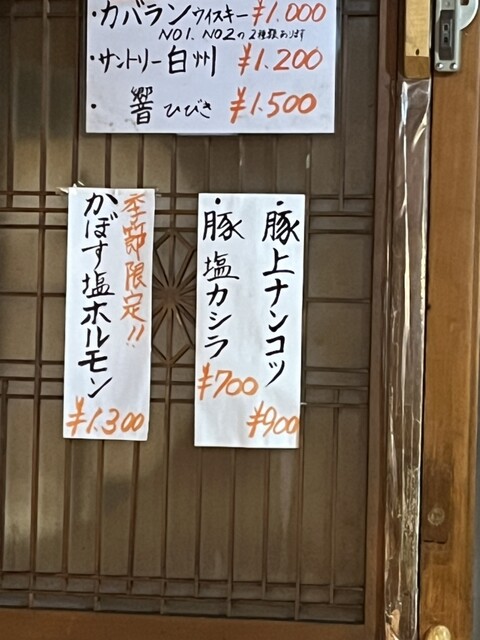 ・カバランウイスキー ¥1.000
NO1. NO2の2種類あります
・サントリー白州 ¥1.200
・響ひびき ¥1.500
・豚上ナンコツ
¥900
・豚塩カシラ
¥700
季節限定!!
かぼす塩ホルモン
¥1.300